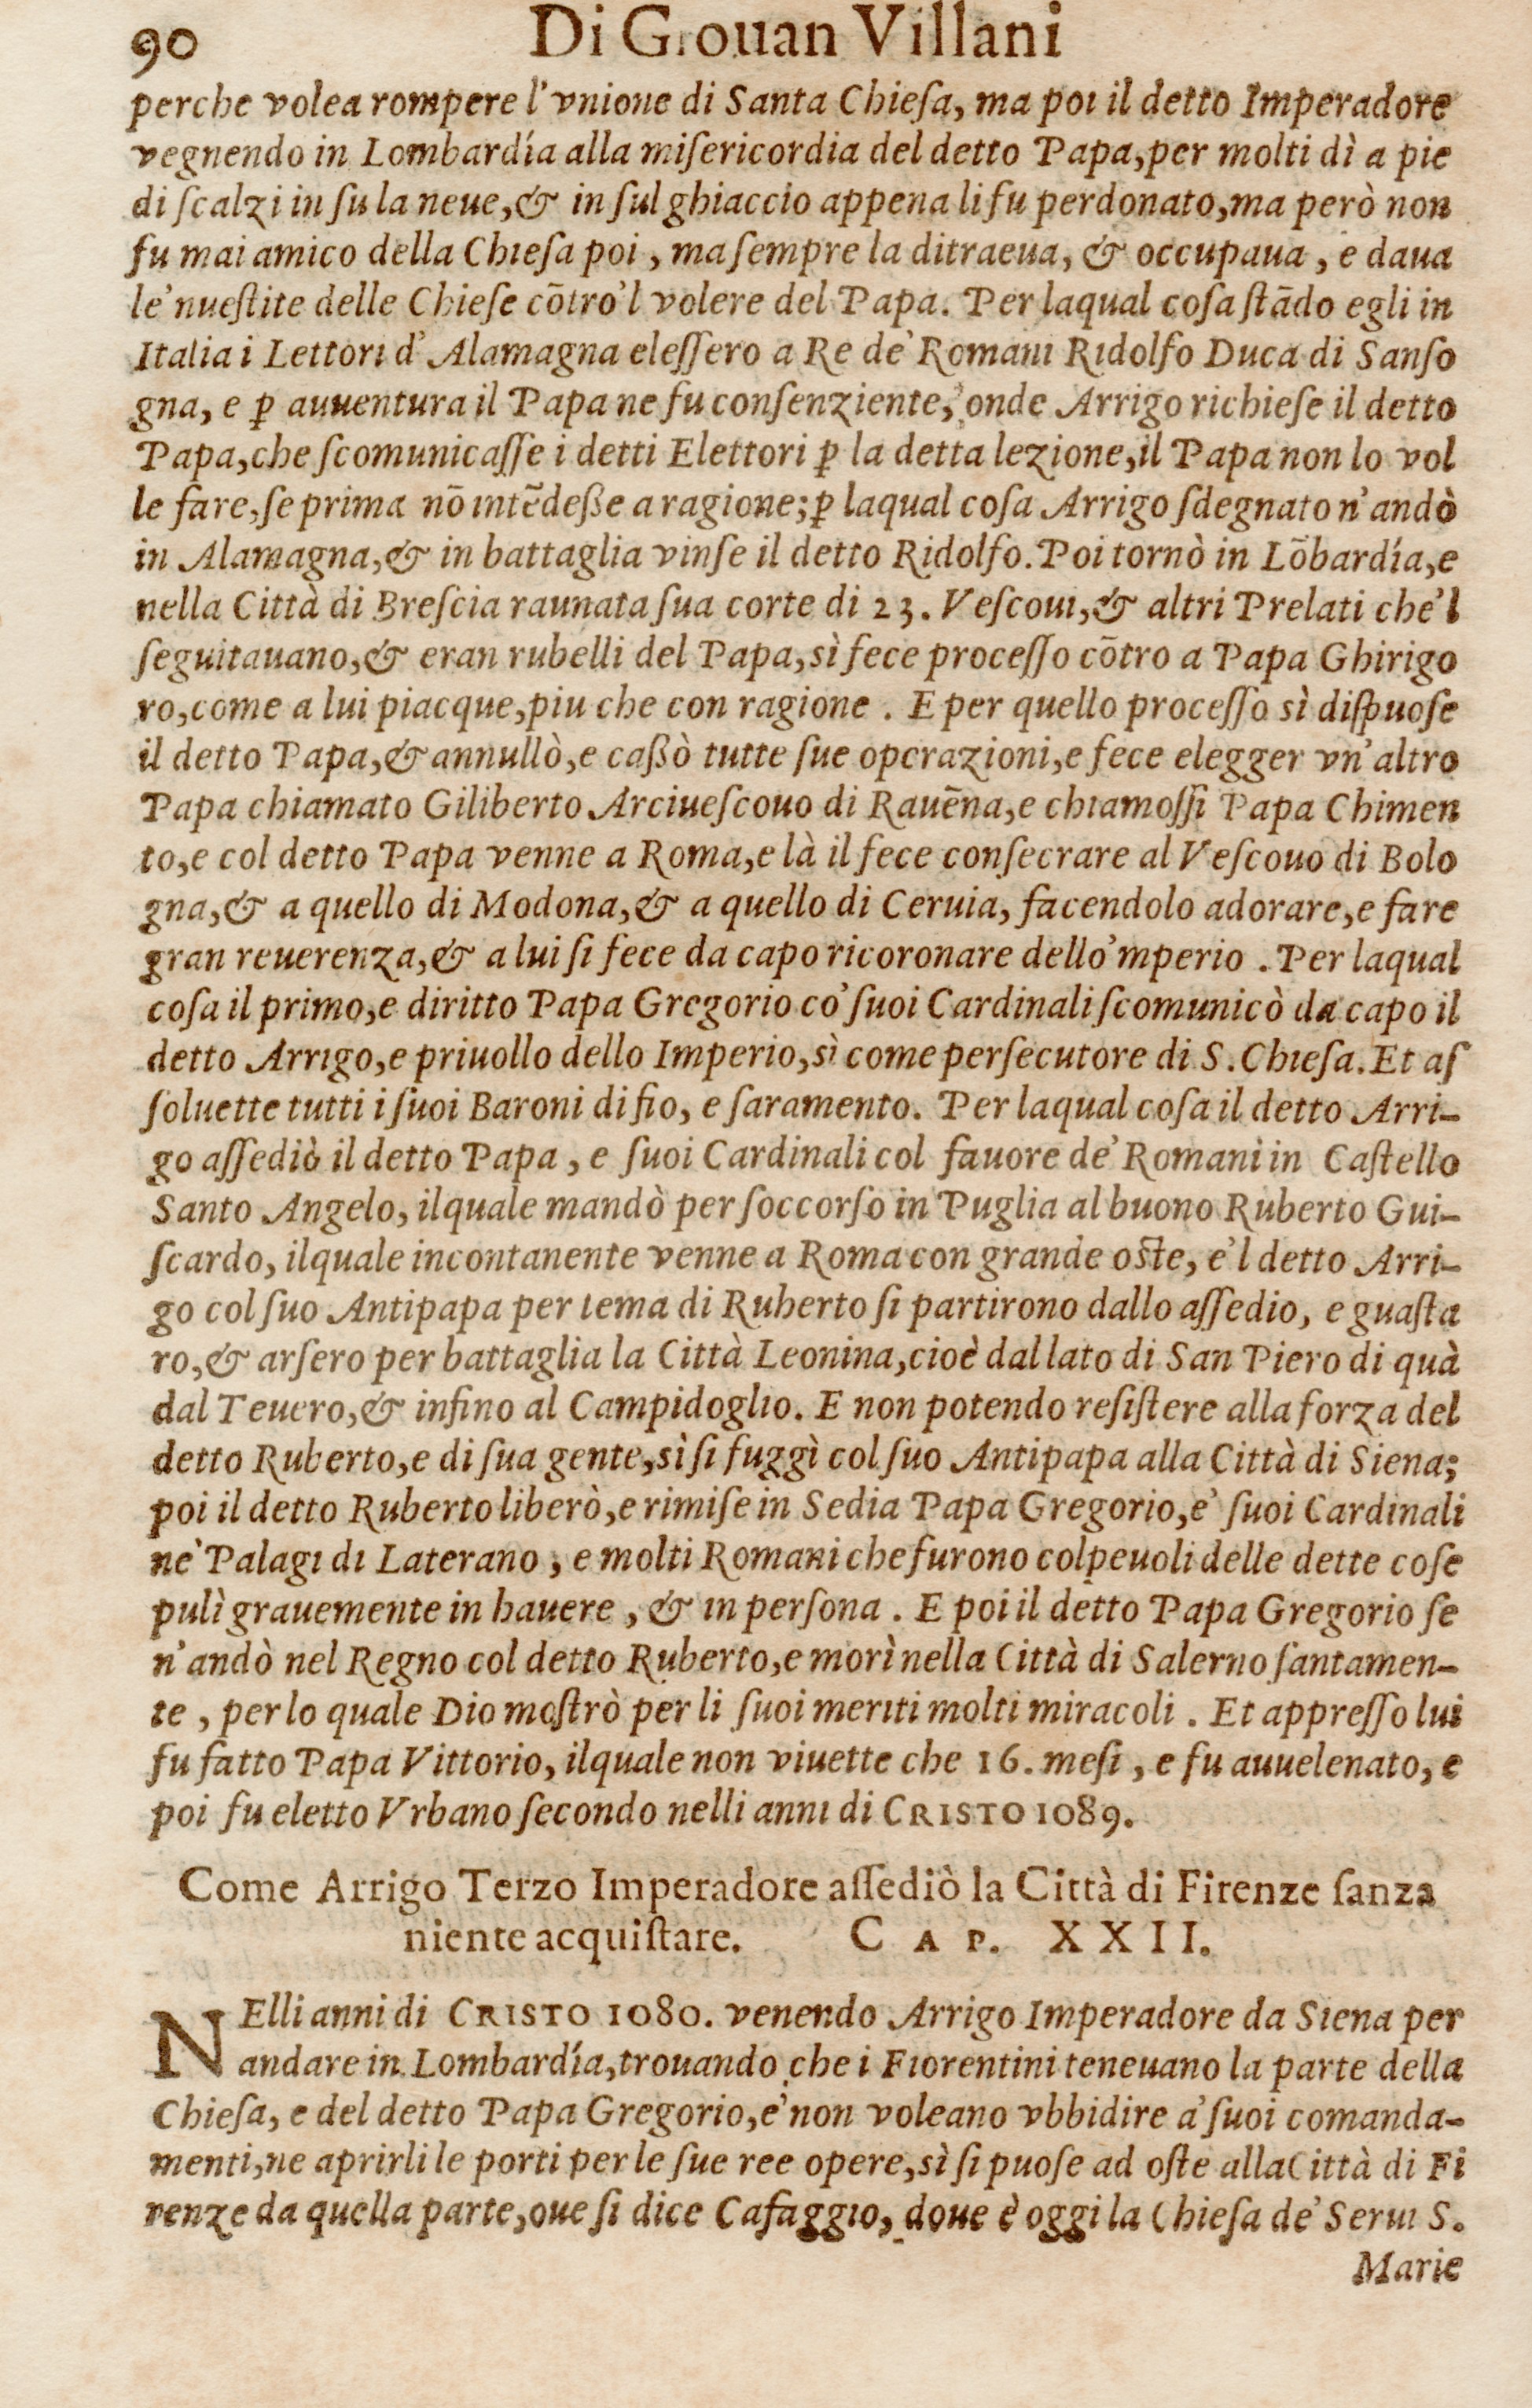 90 Di Giouan Villani
perche volea rompere l'vnione di Santa Chieſa, ma poi il detto Imperadore
vegnendo in Lombardía alla miſericordia del detto Papa, per molti dì a pie
di ſcalzi in ſu la neue, & in ſul ghiaccio appena li fu perdonato, ma però non
fu mai amico della Chieſa poi, ma ſempre la ditraeua, & occupaua, e daua
le'nueſtite delle Chieſe cōtro'l volere del Papa. Per laqual coſa ſtādo egli in
Italia i Lettori d'Alamagna eleſſero a Re de' Romani Ridolfo Duca di Sanſo
gna, e ꝑ auuentura il Papa ne fu conſenziente, onde Arrigo richieſe il detto
Papa, che ſcomunicaſſe i detti Elettori ꝑ la detta lezione, il Papa non lo vol
le fare, ſe prima nō intēdeße a ragione; ꝑ laqual coſa Arrigo ſdegnato n'andò
in Alamagna, & in battaglia vinſe il detto Ridolfo. Poi tornò in Lōbardía, e
nella Città di Breſcia raunata ſua corte di 23. Veſcoui, & altri Prelati che'l
ſeguitauano, & eran rubelli del Papa, sì fece proceſſo cōtro a Papa Ghirigo
ro, come a lui piacque, piu che con ragione. E per quello proceſſo sì diſpuoſe
il detto Papa, & annullò, e caßò tutte ſue operazioni, e fece elegger vn'altro
Papa chiamato Giliberto Arciueſcouo di Rauēna, e chiamoſſi Papa Chimen
to, e col detto Papa venne a Roma, e là il fece conſecrare al Veſcouo di Bolo
gna, & a quello di Modona, & a quello di Ceruia, facendolo adorare, e fare
gran reuerenza, & a lui ſi fece da capo ricoronare dello'mperio. Per laqual
coſa il primo, e diritto Papa Gregorio co' ſuoi Cardinali ſcomunicò da capo il
detto Arrigo, e priuollo dello Imperio, sì come perſecutore di S. Chieſa. Et aſ
ſoluette tutti i ſuoi Baroni di fio, e ſaramento. Per laqual coſa il detto Arri-
go aſſediò il detto Papa, e ſuoi Cardinali col fauore de' Romani in Caſtello
Santo Angelo, ilquale mandò per ſoccorſo in Puglia al buono Ruberto Gui-
ſcardo, ilquale incontanente venne a Roma con grande oſte, e'l detto Arri-
go col ſuo Antipapa per tema di Ruberto ſi partirono dallo aſſedio, e guaſta
ro, & arſero per battaglia la Città Leonina, cioè dal lato di San Piero di quà
dal Teuero, & infino al Campidoglio. E non potendo reſiſtere alla forza del
detto Ruberto, e di ſua gente, sì ſi fuggì col ſuo Antipapa alla Città di Siena;
poi il detto Ruberto liberò, e rimiſe in Sedia Papa Gregorio, e' ſuoi Cardinali
ne' Palagi di Laterano, e molti Romani che furono colpeuoli delle dette coſe
pulì grauemente in hauere, & in perſona. E poi il detto Papa Gregorio ſe
n'andò nel Regno col detto Ruberto, e morì nella Città di Salerno ſantamen-
te, per lo quale Dio moſtrò per li ſuoi meriti molti miracoli. Et appreſſo lui
fu fatto Papa Vittorio, ilquale non viuette che 16. meſi, e fu auuelenato, e
poi fu eletto Vrbano ſecondo nelli anni di CRISTO 1089.
Come Arrigo Terzo Imperadore aſſediò la Città di Firenze ſanza
niente acquiſtare. CAP. XXII.
NElli anni di CRISTO 1080. venendo Arrigo Imperadore da Siena per
andare in Lombardía, trouando che i Fiorentini teneuano la parte della
Chieſa, e del detto Papa Gregorio, e' non voleano vbbidire a' ſuoi comanda-
menti, ne aprirli le porti per le ſue ree opere, sì ſi puoſe ad oſte alla Città di Fi
renze da quella parte, oue ſi dice Cafaggio, doue è oggi la Chieſa de' Serui S.
Marie